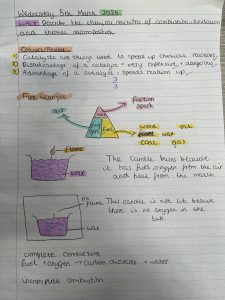 Wednesday 5th March 2025
WALT: Describe the chemical reactions of combustion, oxidation and thermal decomposition
Connect/Recap
1 Catalysts are things used to speed up chemical reactions
2 Disadvantage of a catalyst - very expensive + dangerous
3 Advantage of a catalyst - speeds reaction up
3
3
Fire triangle
friction
spark
air
heat
oxygen
fuel
wood oil
wax
coal gas
flame
wax
The candle burns because
it has fuel, oxygen from the air
and heat from the match
no
flame
This candle is not lit because
there is no oxygen in the
tub
wax
complete combustion
fuel + oxygen → carbon dioxide + water
incomplete combustion